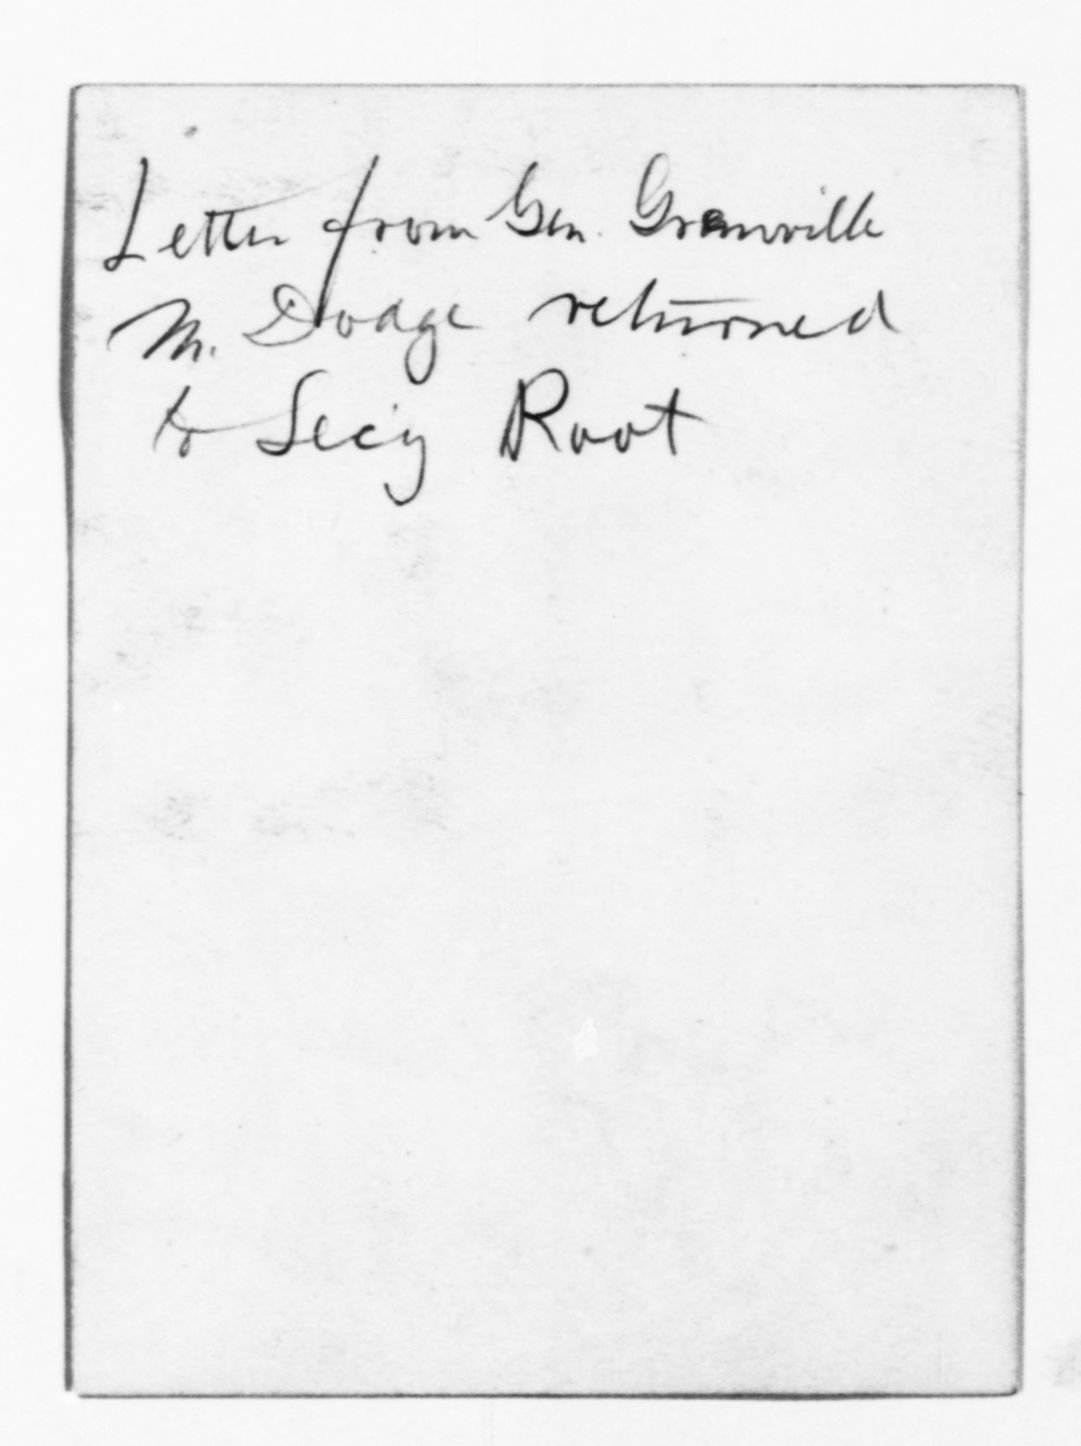 Letter from Gen. Granville
M. Dodge returned
to Secy Root